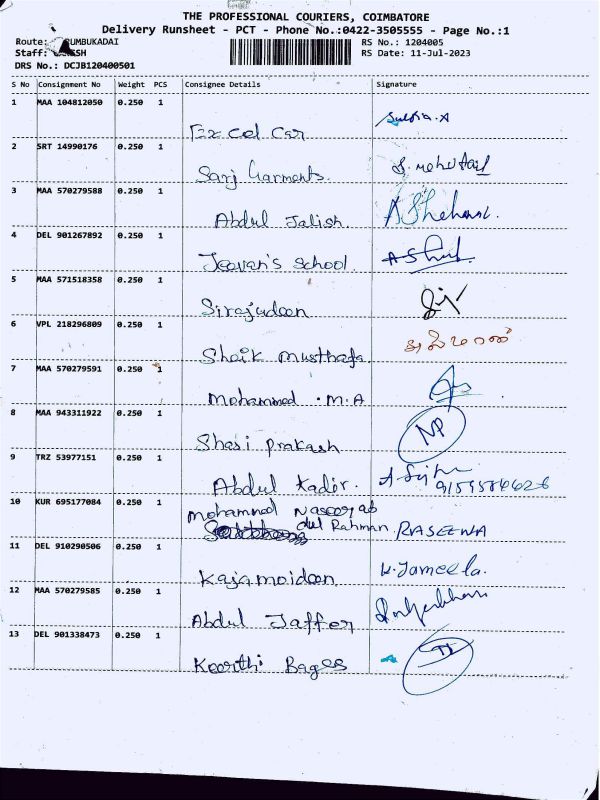 THE PROFESSIONAL COURIERS, COIMBATORE
Delivery Runsheet - PCT - Phone No.:0422-3505555 - Page No.:1
Route: UMBUKADAI
RS No.: 1204005
Staff: ESH
RS Date: 11-Jul-2023
DRS No.: DCJB120400501
S No Consignment No Weight PCS Consignee Details Signature
1 MAA 104812050 0.250 1
Excel Car
2 SRT 14990176 0.250 1
Sanj Garments.
3 MAA 570279588 0.250 1
Abdul Jalish.
4 DEL 901267892 0.250 1
Jeevan's School.
5 MAA 571518358 0.250 1
Sirajudeen
6 VPL 218296809 0.250 1
Shaik Musthafa.
7 MAA 570279591 0.250 1
Mohammed . M.A
8 MAA 943311922 0.250 1 NP
Shasi Prakash
9 TRZ 53977151 0.250 1
Abdul Kader.
10 KUR 695177084 0.250 1
Mohammed Naseer ab
dul Rahman RASEENA
11 DEL 910290506 0.250 1
Kajamoideen K. Jameela.
12 MAA 570279585 0.250 1
Abdul Jaffer
13 DEL 901338473 0.250 1
Keerthi Bages